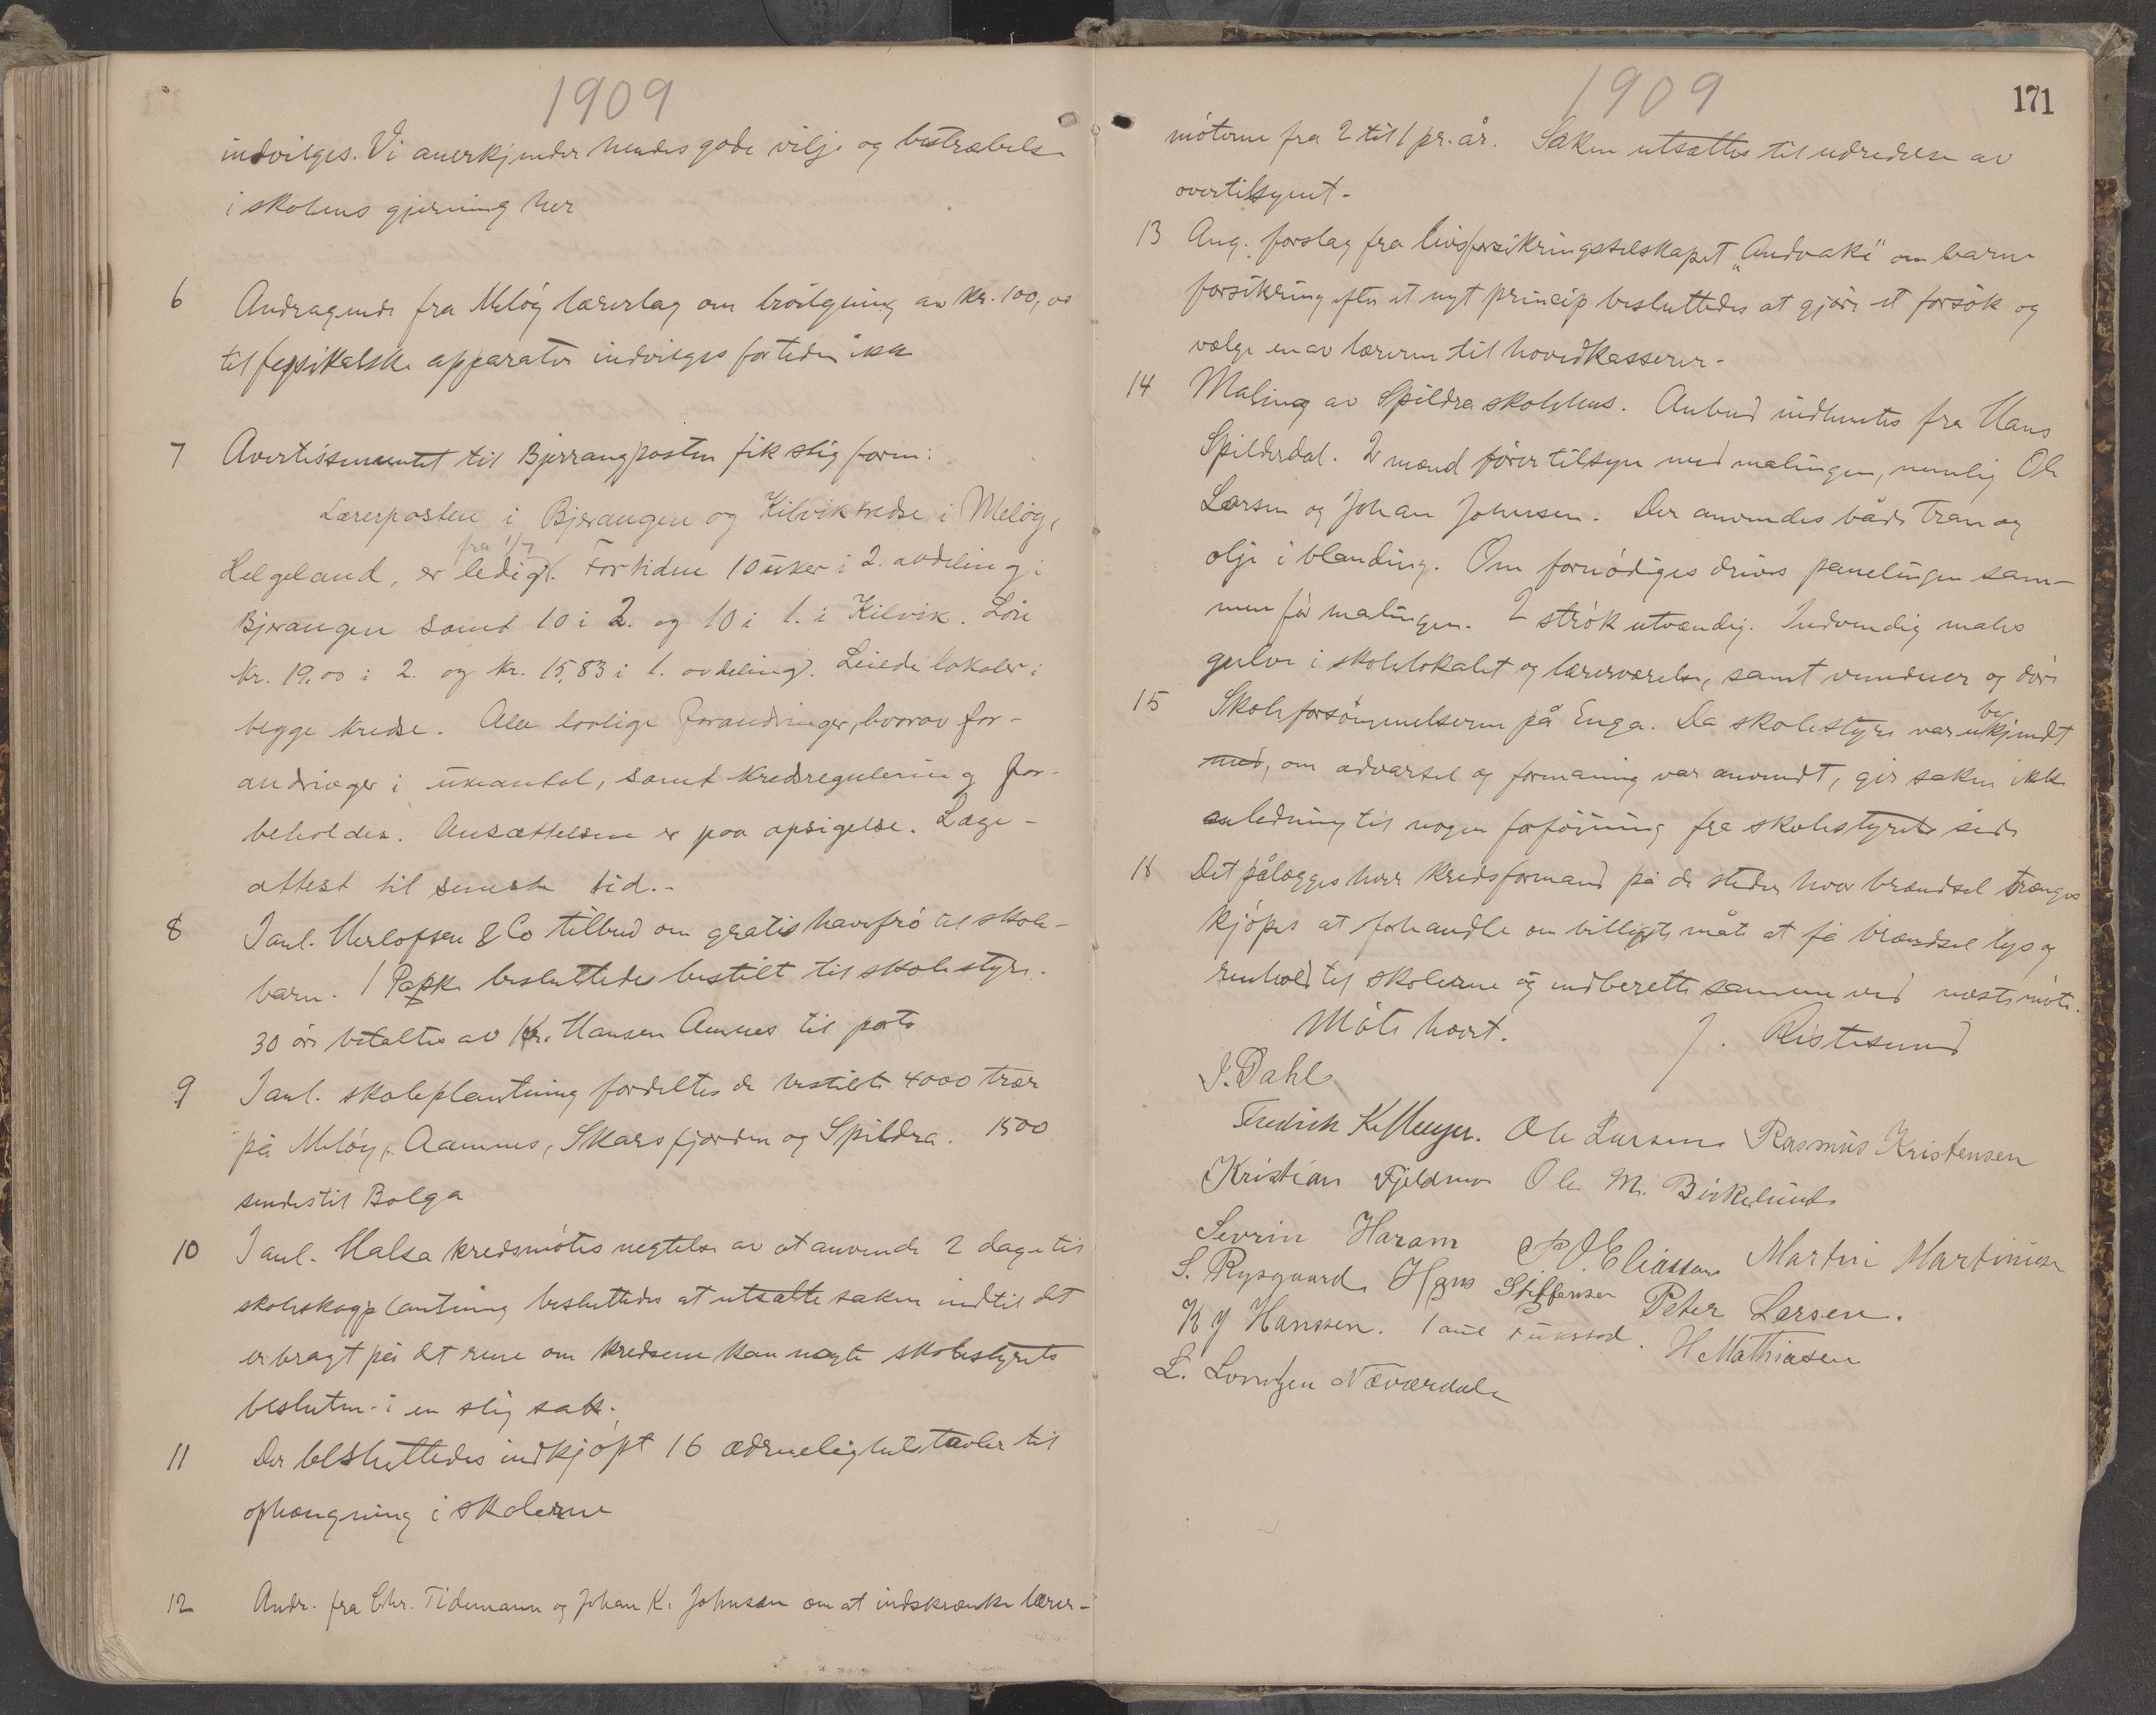 1909
indvilges. Vi anerkjender hendes gode vilje og bestræbelse
i skolens gjerning her
6 Andragende fra Meløy lærerlag om bevilgning av kr. 100,00
til fysikalske apparater indvilges for tiden ikke
7 Avertissementet til Bjerangposten fik slig form:
Lærerposten i Bjerangen og Kilvik kredse i Meløy,
Helgeland, er ledig fra 1/7. For tiden 10 uker i 2. avdeling i
Bjerangen samt 10 i 2. og 10 i 1. i Kilvik. Løn
kr. 19.00 i 2. og kr. 15,83 i 1. avdeling. Leiede lokaler i
begge kredse. Alle lovlige forandringer, hvorav for-
andringer i ukeantal, samt kredsregulering for-
beholdes. Ansættelsen er paa opsigelse. Læge-
attest til seneste tid.-
8 I anl. Herlofsen & Co tilbud om gratis havefrø til skole-
barn. 1 Pakke besluttedes bestilt til skolestyre.
30 øre betaltes av Kr. Hansen Amnes til porto
9 I anl. skoleplantning fordeltes de bestilte 4000 trær
på Meløy, Aamnes, Skarsfjorden og Spildra. 1500
sendes til Bolga
10 I anl. Halsa kredsmøtes negtelse av at anvende 2 dage til
skoleskogplantning besluttedes at utsætte saken indtil det
er bragt på det rene om kredsene kan negte skolestyrets
beslutn. i en slig sak.
11 Der besluttedes indkjøpt 16 ædruelighetstavler til
ophængning i skolerne
12 Andr. fra Chr. Tidemann og Johan K. Johnsen om at indskrænke lærer-
1909
171
møterne fra 2 til 1 pr. år. Saken utsattes til udredelse av
overtilsynet-
13 Ang. forslag fra livsforsikringsselskapet „Andvake" om barne
forsikring efter et nyt princip besluttedes at gjøre et forsøk og
vælge en av lærerne til hovedkasserer-
14 Maling av Spildra skolehus. Anbud indhentes fra Hans
Spilderdal. 2 mænd fører tilsyn med malingen, nemlig Ole
Larsen og Johan Johnsen. Der anvendes både tran og
olje i blanding. Om fornødiges drives panelingen sam-
men før malingen. 2 strøk utvændig. Indvendig males
gulve i skolelokalet og lærerværelse, samt vinduer og døre
15 Skoleforsømmelserne på Enga. Da skolestyre var ubekjendt
med, om advarsel og formaning var anvendt, gir saken ikke
anledning til nogen forføining fra skolestyrets side
18 Det pålægges hver kredsformand på de steder hvor brændsel trænges
kjøpes at forhandle om billigste måte at få brændsel lys og
renhold til skolerne og indberette samme ved næste møte.
Møte hævt.
J. Ristesund
J. Dahl
Fredrik K. Meyer. Ole Larsen Rasmus Kristensen
Kristian Fjeldmo Ole M. Birkelund
Sevrin Haram P. J. Eliassen Martin Martinsen
S. Rysgaard Hans Steffensen Peter Larsen.
K J Hanssen. H Mathiasen
L. Lorentzen Næverdale